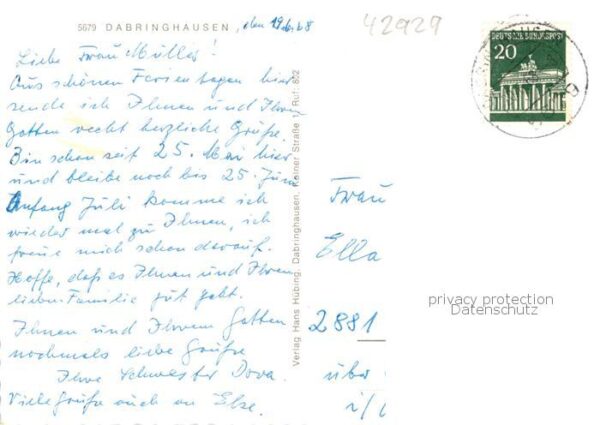 5679 DABRINGHAUSEN, den 19.6.68
42929
Liebe Frau Müller!
Aus schönen Ferientagen hier
sende ich Ihnen und Ihrem
Gatten recht herzliche Grüße.
Bin schon seit 25. Mai hier
und bleibe noch bis 25. Juni
Anfang Juli komme ich
wieder mal zu Ihnen, ich
freue mich schon darauf.
Hoffe, daß es Ihnen und Ihrer
lieben Familie gut geht.
Ihnen und Ihrem Gatten
nochmals liebe Grüße
Ihre Schwester Dora.
Viele Grüße auch an Else.
Verlag Hans Hübing, Dabringhausen, Ruf: 852
DEUTSCHE BUNDESPOST
20
Frau
Ella
2881
über
privacy protection
Datenschutz